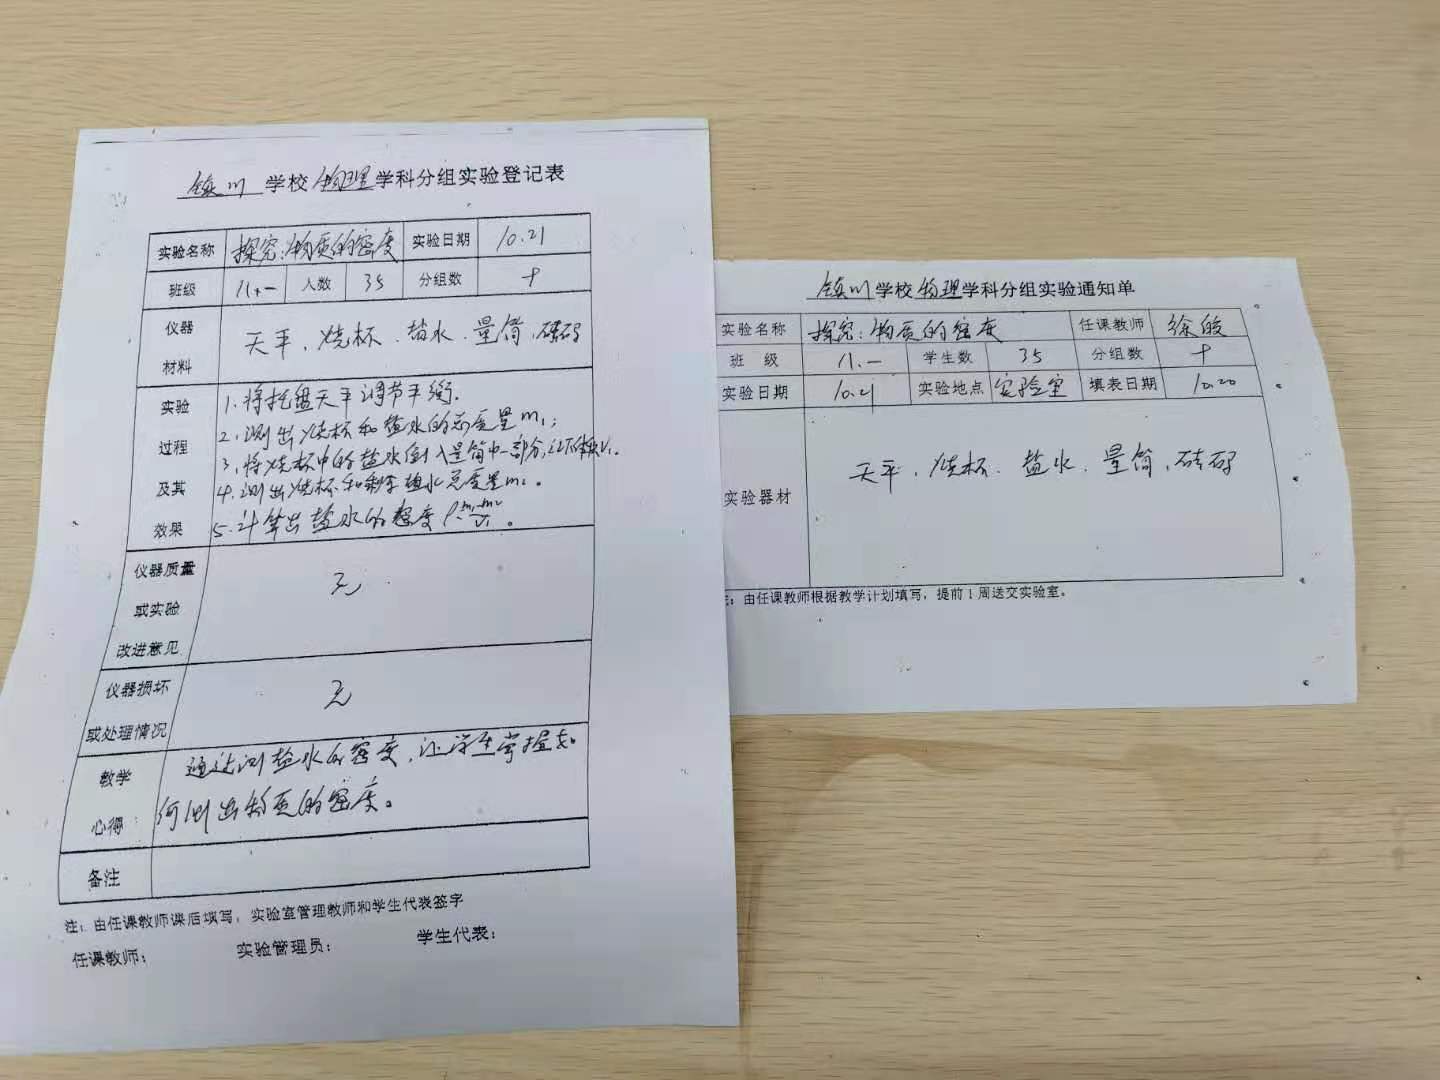 镇川 学校 物理 学科分组实验登记表
实验名称 探究:物质的密度 实验日期 10.21
班级 八.一 人数 35 分组数 十
仪器
材料
天平、烧杯、盐水、量筒、砝码
实验
过程
及其
效果
1.将托盘天平调节平衡.
2.测出烧杯和盐水的总质量m₁;
3.将烧杯中的盐水倒入量筒中一部分,记下体积V₁。
4.测出烧杯和剩余盐水总质量m₂。
5.计算出盐水的密度ρ=m₁-m₂/V₁。
仪器质量
或实验
改进意见
无
仪器损坏
或处理情况
无
教学
心得
通过测盐水的密度,让学生掌握如
何测出物质的密度。
备注
注:由任课教师课后填写,实验室管理教师和学生代表签字
任课教师: 实验管理员: 学生代表:
镇川 学校 物理 学科分组实验通知单
实验名称 探究:物质的密度 任课教师 徐
班 级 八.一 学生数 35 分组数 十
实验日期 10.21 实验地点 实验室 填表日期 10.20
实验器材
天平、烧杯、盐水、量筒、砝码
:由任课教师根据教学计划填写,提前1周送交实验室。